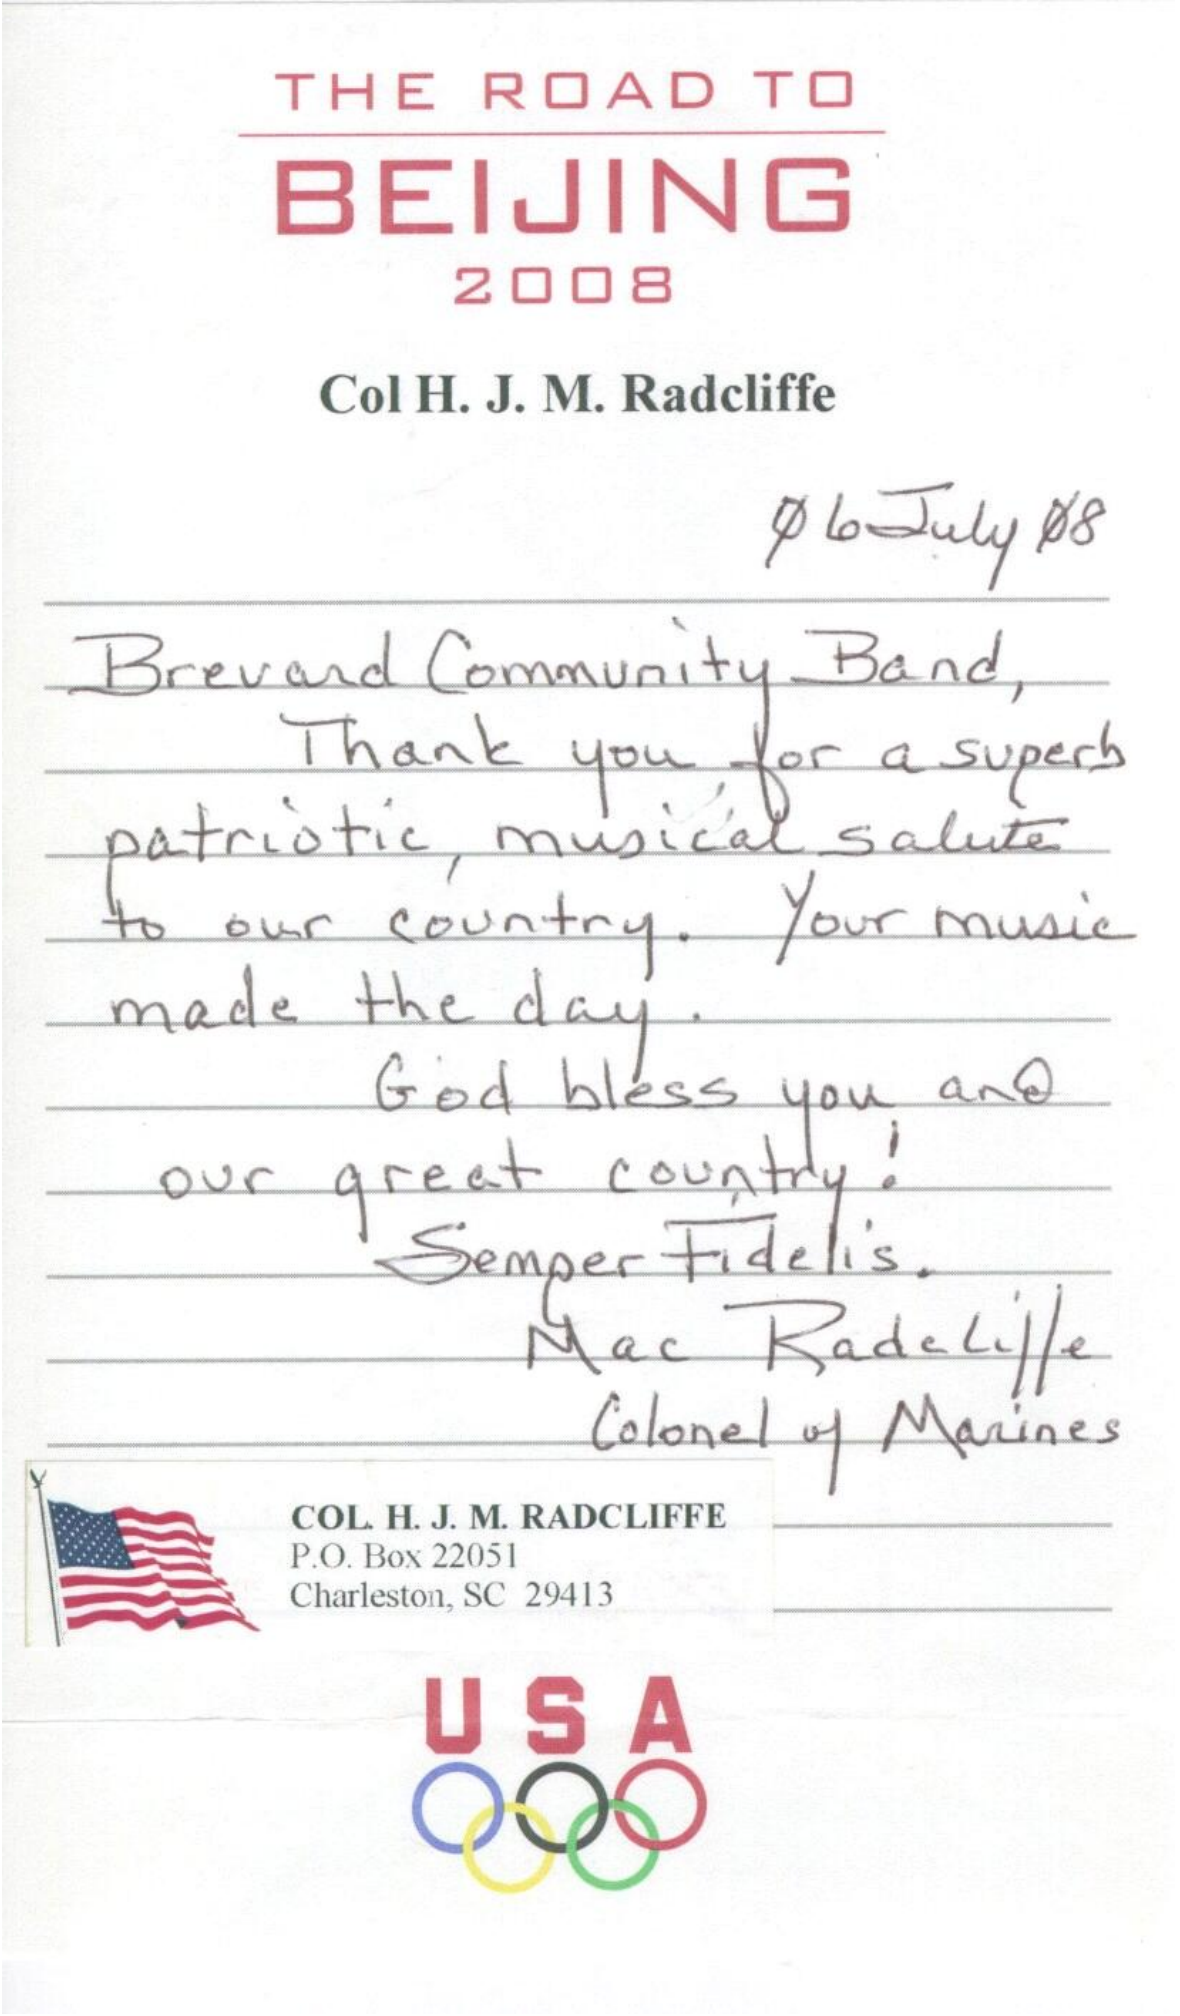 THE ROAD TO
BEIJING
2008
Col H. J. M. Radcliffe
06 July 08
Brevard Community Band,
Thank you for a superb
patriotic, musical salute
to our country. Your music
made the day.
God bless you and
our great country!
Semper Fidelis.
Mac Radcliffe
Colonel of Marines
COL. H. J. M. RADCLIFFE
P.O. Box 22051
Charleston, SC 29413
USA